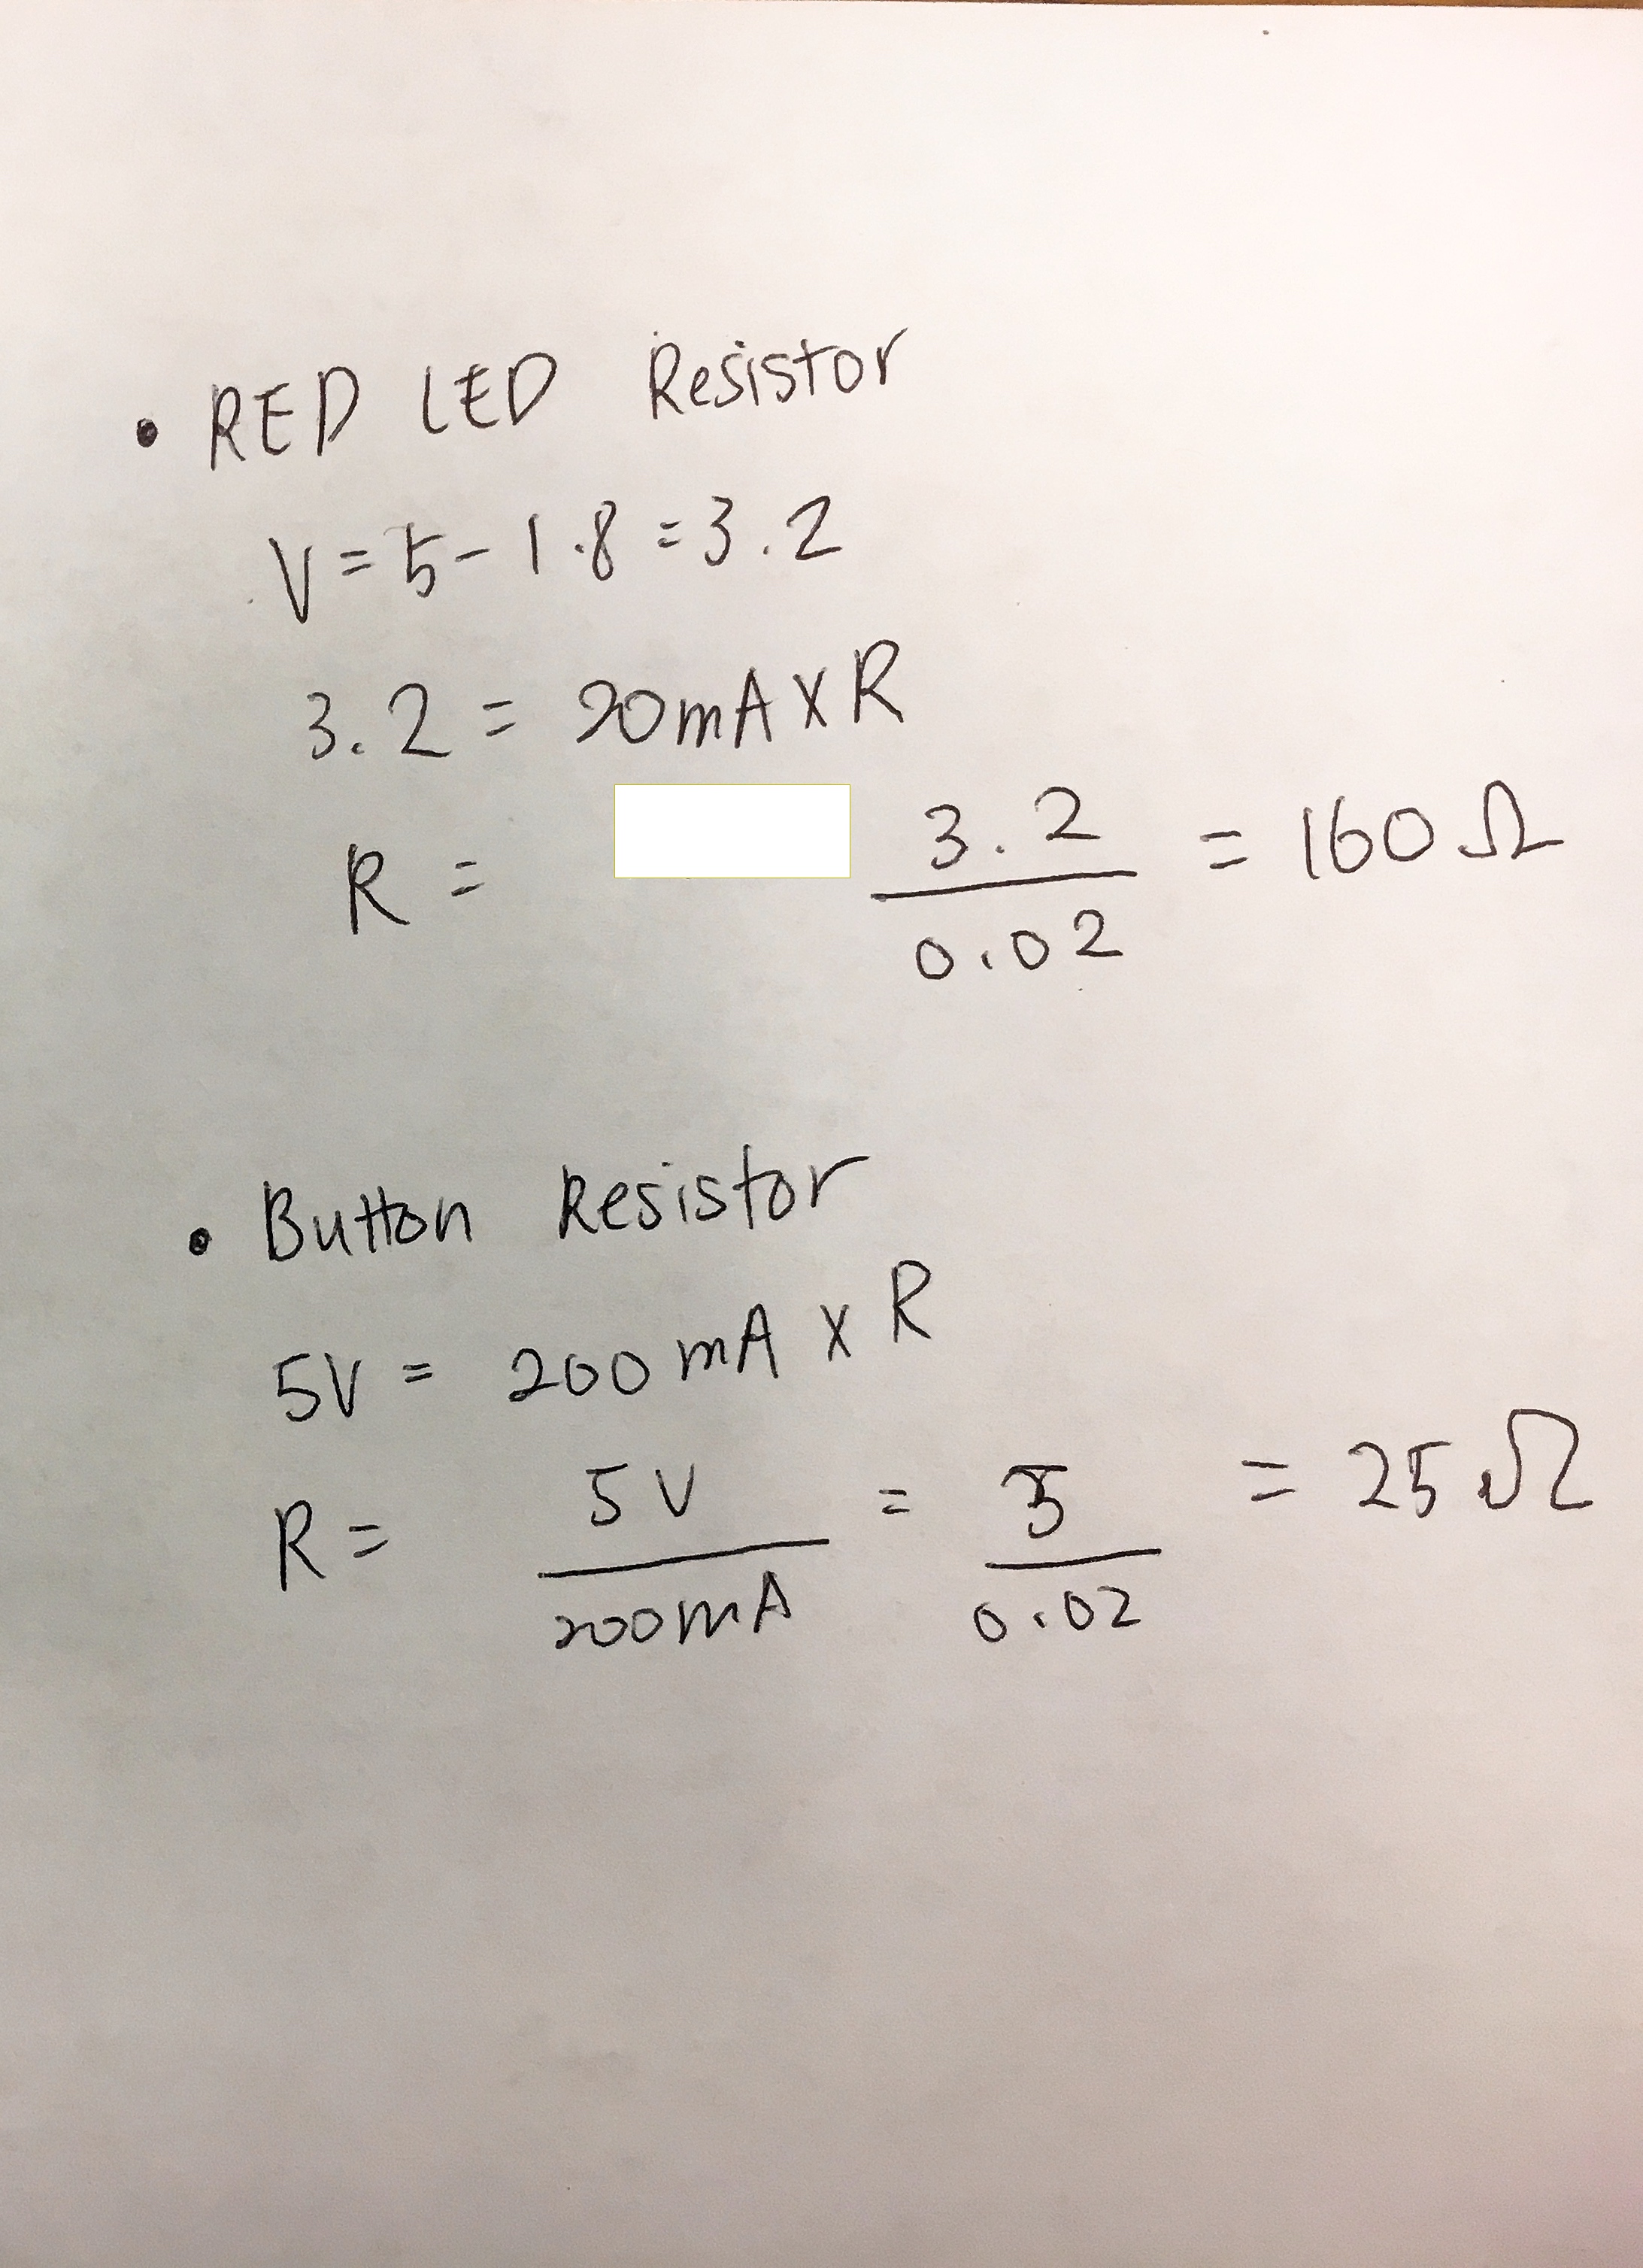 • RED LED Resistor
V = 5 - 1.8 = 3.2
3.2 = 20mA x R
R = 3.2 / 0.02 = 160 Ω
• Button Resistor
5V = 200 mA x R
R = 5V / 200mA = 5 / 0.02 = 25 Ω